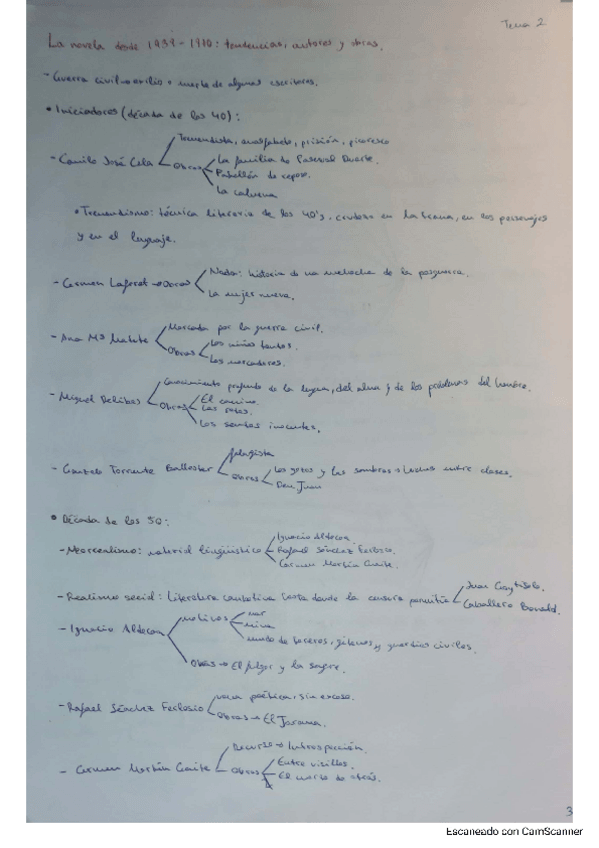 Tema 2
La novela desde 1939-1970: tendencias, autores y obras.
- Guerra civil → exilio o muerte de algunos escritores.
• Iniciadores (década de los 40):
Tremendista, analfabeto, prisión, picaresco
- Camilo José Cela
Obras
La familia de Pascual Duarte.
Pabellón de reposo.
La colmena
• Tremendismo: técnica literaria de los 40's, crudeza en la trama, en los personajes
y en el lenguaje.
- Carmen Laforet → Obras
Nada: historia de una muchacha de la posguerra.
La mujer nueva.
- Ana Mª Matute
Marcada por la guerra civil.
Obras
Los niños tontos.
Los mercaderes.
- Miguel Delibes
Conocimiento profundo de la lengua, del alma y de los problemas del hombre.
Obras
El camino.
Las ratas.
Los santos inocentes.
- Gonzalo Torrente Ballester
falangista
Obras
Los gozos y las sombras → luchas entre clases.
Don Juan
• Década de los 50:
- Neorrealismo: material lingüístico
Ignacio Aldecoa
Rafael Sánchez Ferlosio.
Carmen Martín Gaite.
- Realismo social: literatura combativa hasta donde la censura permitía
Juan Goytisolo.
Caballero Bonald.
- Ignacio Aldecoa
motivos
mar
mina
mundo de toreros, gitanos y guardias civiles.
Obras → El fulgor y la sangre.
- Rafael Sánchez Ferlosio
vena poética, sin exceso.
Obras → El Jarama.
- Carmen Martín Gaite
Recurso → Introspección.
Obras
Entre visillos.
El cuarto de atrás.
3
Escaneado con CamScanner